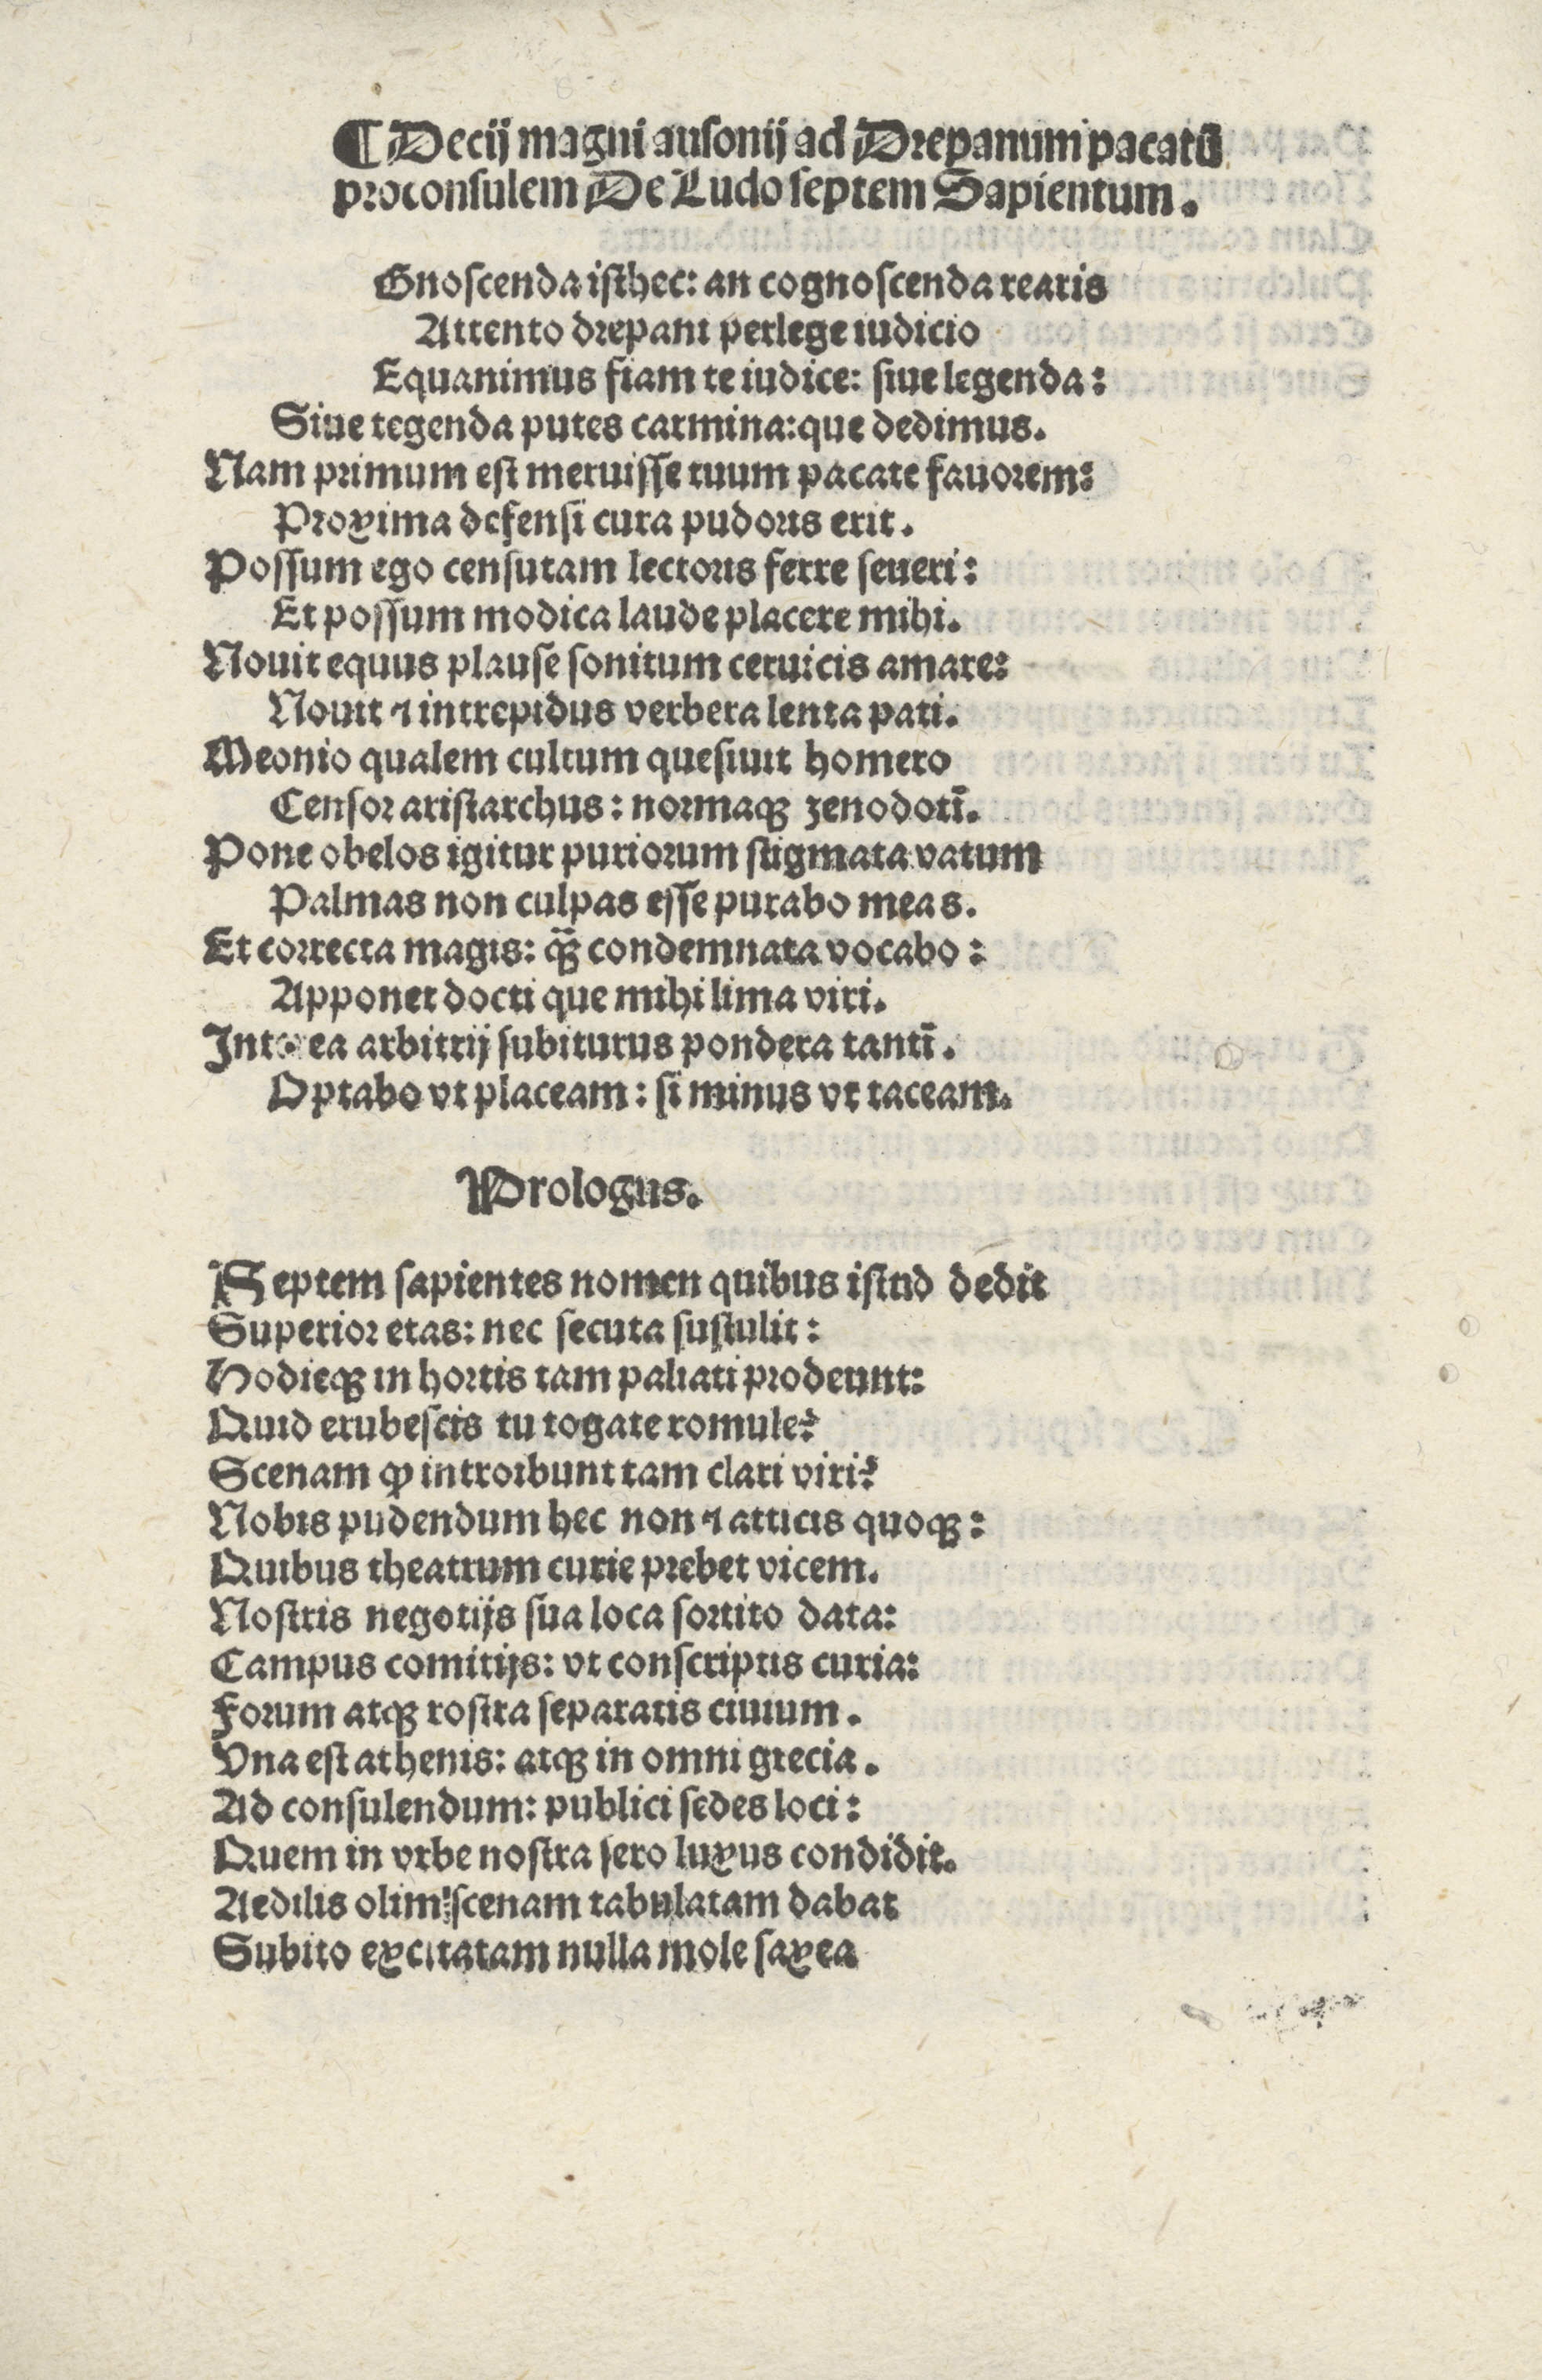 ¶ Decij magni ausonij ad Drepanum pacatū
proconsulem De Ludo septem Sapientum.
Gnoscenda isthec: an cognoscenda rearis
Attento drepani perlege iudicio
Equanimus fiam te iudice: siue legenda:
Siue tegenda putes carmina: que dedimus.
Nam primum est meruisse tuum pacate fauorem:
Proxima defensi cura pudoris erit.
Possum ego censuram lectoris ferre seueri:
Et possum modica laude placere mihi.
Nouit equus plause sonitum ceruicis amare:
Nouit ⁊ intrepidus verbera lenta pati.
Meonio qualem cultum quesiuit homero
Censor aristarchus: normaqꝫ zenodoti̅.
Pone obelos igitur puriorum stigmata vatum
Palmas non culpas esse putabo meas.
Et correcta magis: qꝫ̄ condemnata vocabo:
Apponet docti que mihi lima viri.
Interea arbitrij subiturus pondera tanti̅.
Optabo vt placeam: si minus vt taceam.
Prologus.
Septem sapientes nomen quibus istud dedit
Superior etas: nec secuta sustulit:
Hodieqꝫ in hortis tam paliati prodeunt:
Quid erubescis tu togate romule?
Scenam ꝙ introibunt tam clari viri?
Nobis pudendum hec non ⁊ atticis quoqꝫ:
Quibus theatrum curie prebet vicem.
Nostris negotijs sua loca sortito data:
Campus comitijs: vt conscriptis curia:
Forum atqꝫ rostra separatis ciuium.
Vna est athenis: atqꝫ in omni grecia.
Ad consulendum: publici sedes loci:
Quem in vrbe nostra sero luxus condidit.
Aedilis olim: scenam tabulatam dabat
Subito excitatam nulla mole saxea